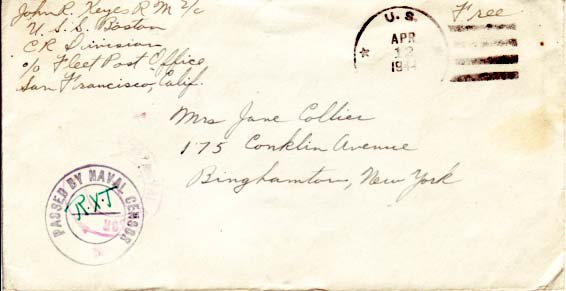 John R. Keyes R M 2/c
U. S. S. Boston
C R Division
c/o Fleet Post Office
San Francisco, Calif.
U. S.
APR
12
Free
Mrs Jane Collier
175 Conklin Avenue
Binghamton, New York
PASSED BY NAVAL CENSOR
R.X.T